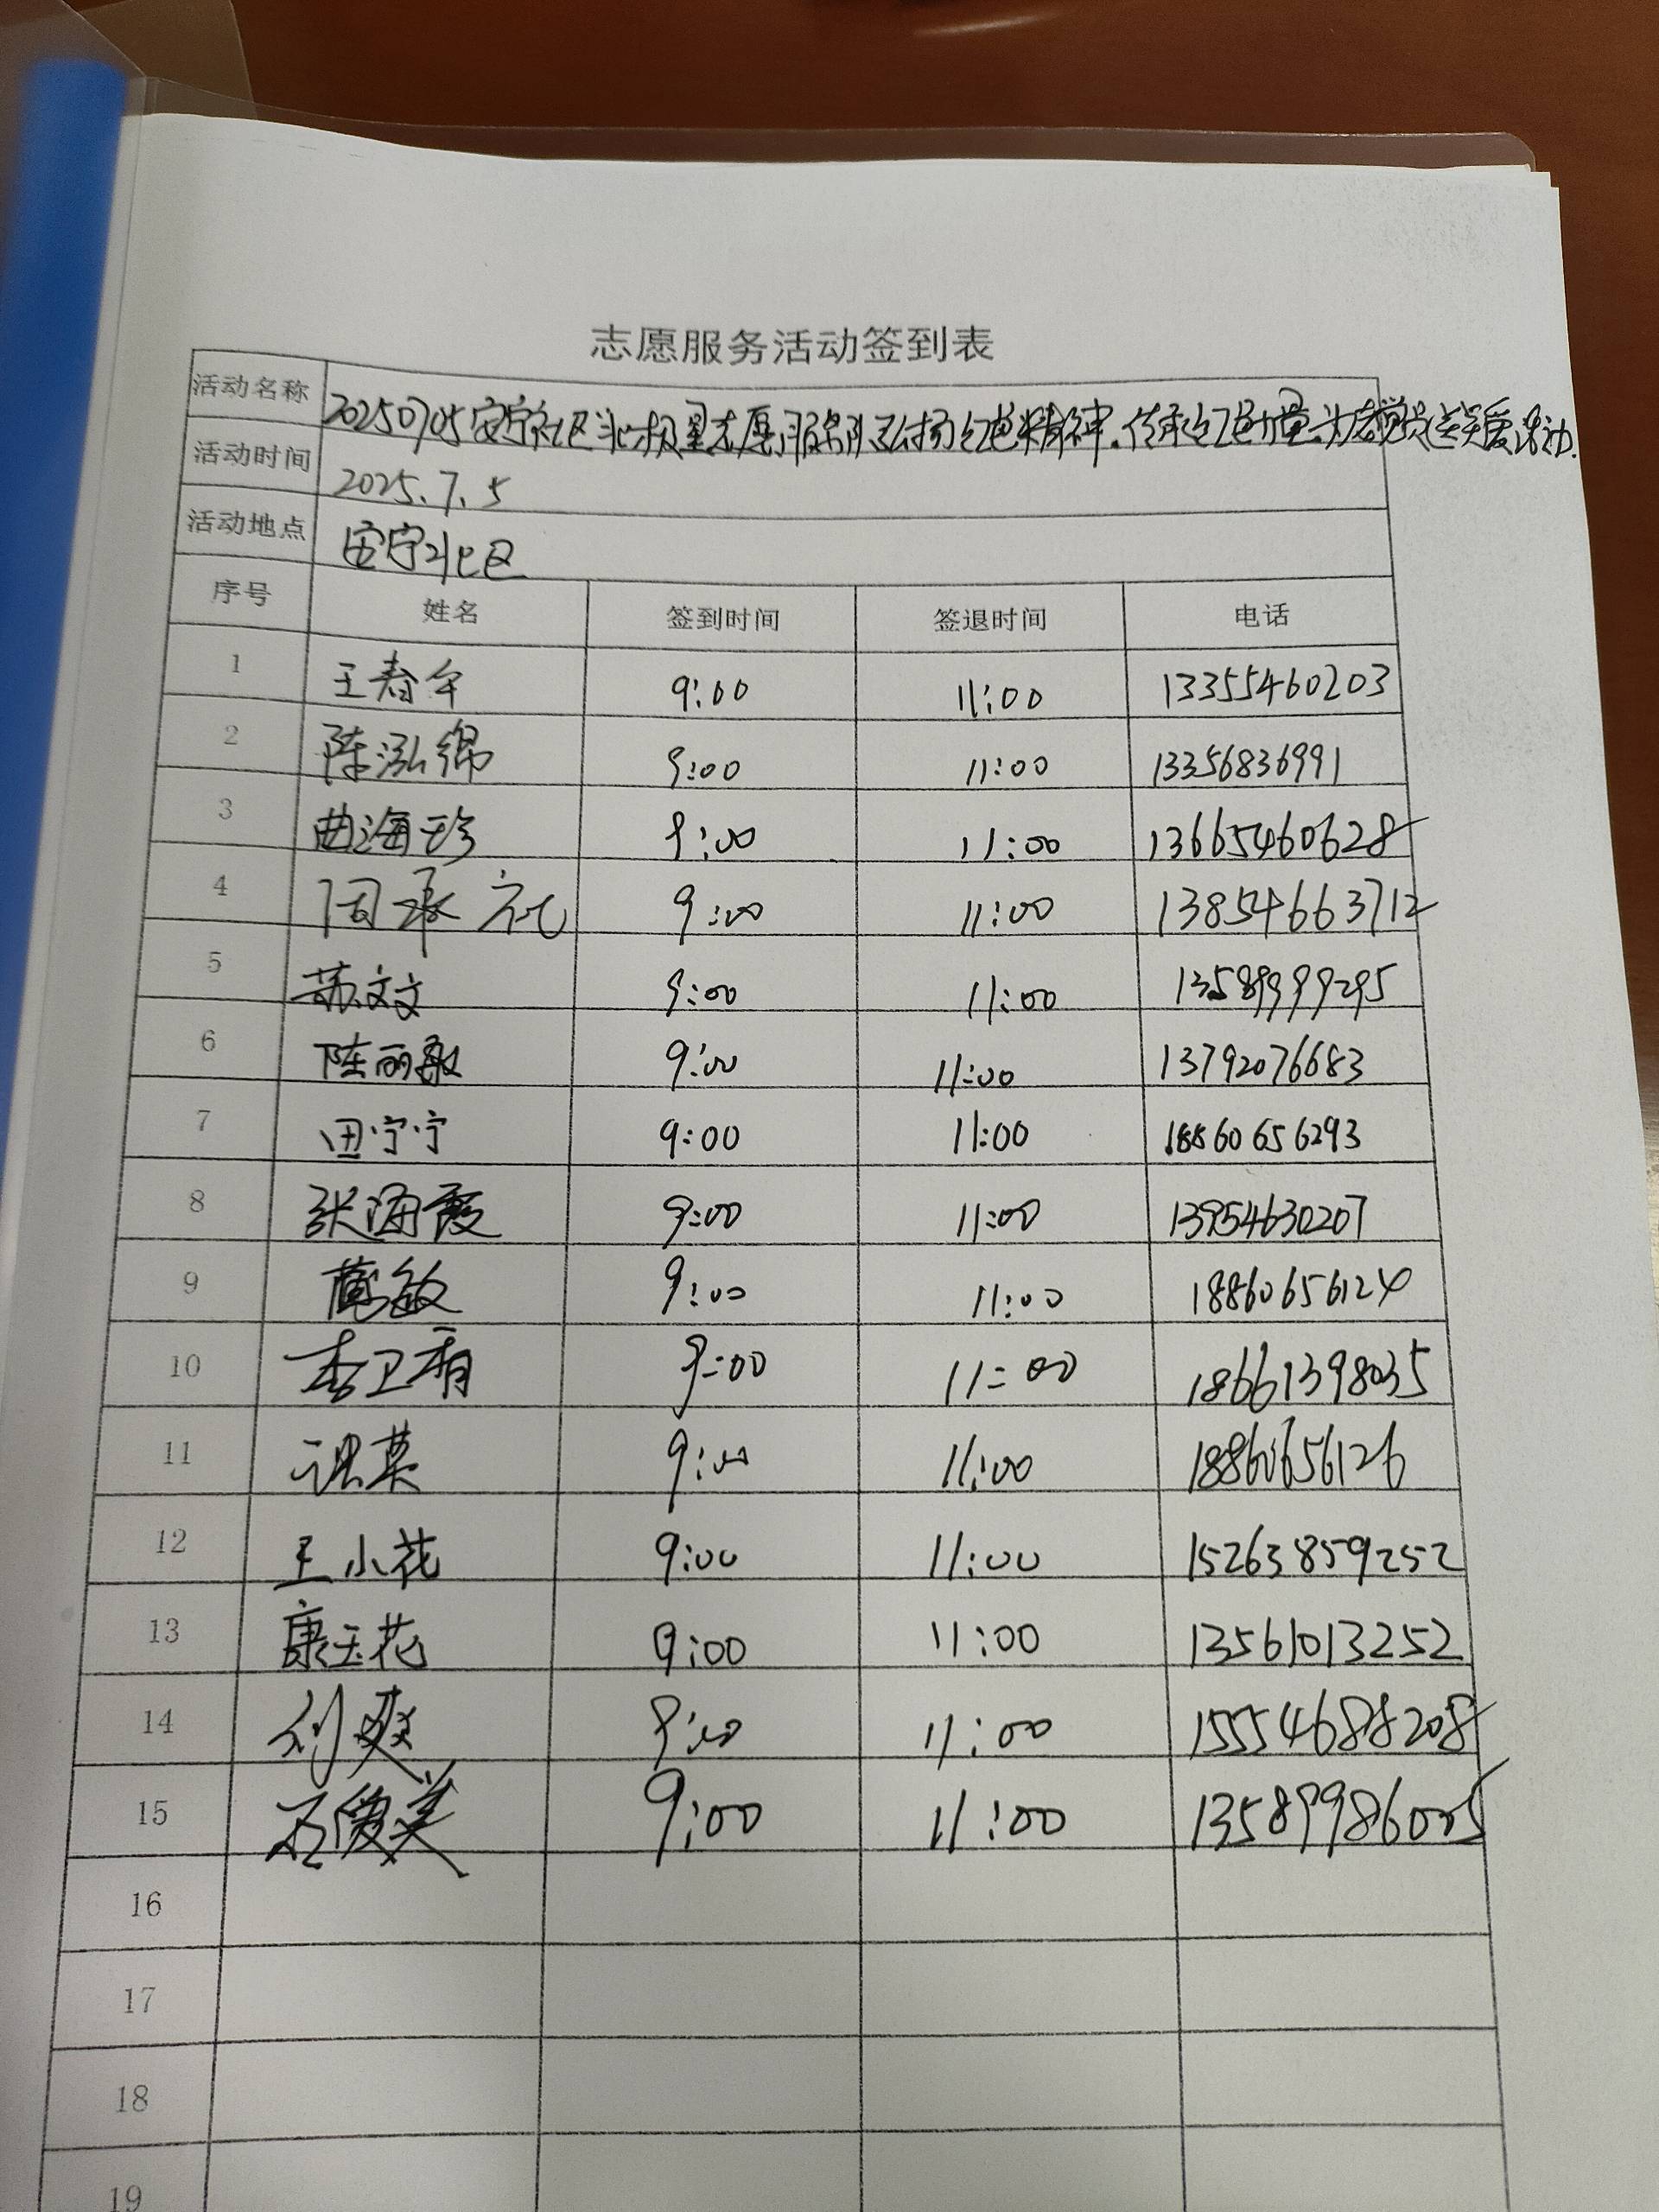 志愿服务活动签到表
活动名称 20250705安宁社区北极星志愿服务队弘扬红色精神.传承红色力量为老党员送关爱活动.
活动时间 2025.7.5
活动地点 安宁北区
序号 姓名 签到时间 签退时间 电话
1 王春 9:00 11:00 13355460203
2 陈泓锦 9:00 11:00 13356836991
3 曲海珍 9:00 11:00 13665460628
4 周承礼 9:00 11:00 13854663712
5 苏文文 9:00 11:00 13589999295
6 陈丽敏 9:00 11:00 13792076683
7 田宁宁 9:00 11:00 18860656293
8 张海霞 9:00 11:00 13954630207
9 敏 9:00 11:00 18860656124
10 李卫青 9:00 11:00 18661398035
11 英 9:00 11:00 18860656126
12 王小花 9:00 11:00 15263859252
13 康玉花 9:00 11:00 13561013252
14 刘爽 9:00 11:00 15554688208
15 石俊美 9:00 11:00 13589986005
16
17
18
19